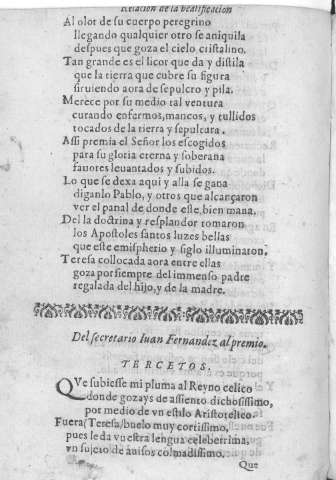 Relacion de la beatificacion
Al olor de su cuerpo peregrino
llegando qualquier otro se aniquila
despues que goza el cielo cristalino.
Tan grande es el licor que da y distila
que la tierra que cubre su figura
siruiendo aora de sepulcro y pila.
Merece por su medio tal ventura
curando enfermos, mancos, y tullidos
tocados de la tierra y sepultura.
Assi premia el Señor los escogidos
para su gloria eterna y soberana
fauores leuantados y subidos.
Lo que se dexa aqui y alla se gana
diganlo Pablo, y otros que alcançaron
ver el panal de donde este, bien mana,
Del la doctrina y resplandor tomaron
los Apostoles santos luzes bellas
que este emispherio y siglo illuminaron,
Teresa collocada aora entre ellas
goza por siempre del immenso padre
regalada del hijo, y de la madre.
Del secretario Iuan Fernandez al premio.
TERCETOS.
QVe subiesse mi pluma al Reyno celico
donde gozays de assiento dichosissimo,
por medio de vn estilo Aristotelico
Fuera (Teresa) buelo muy cortissimo,
pues le da vuestra lengua celeberrima,
vn sujeto de auisos colmadissimo.
Que